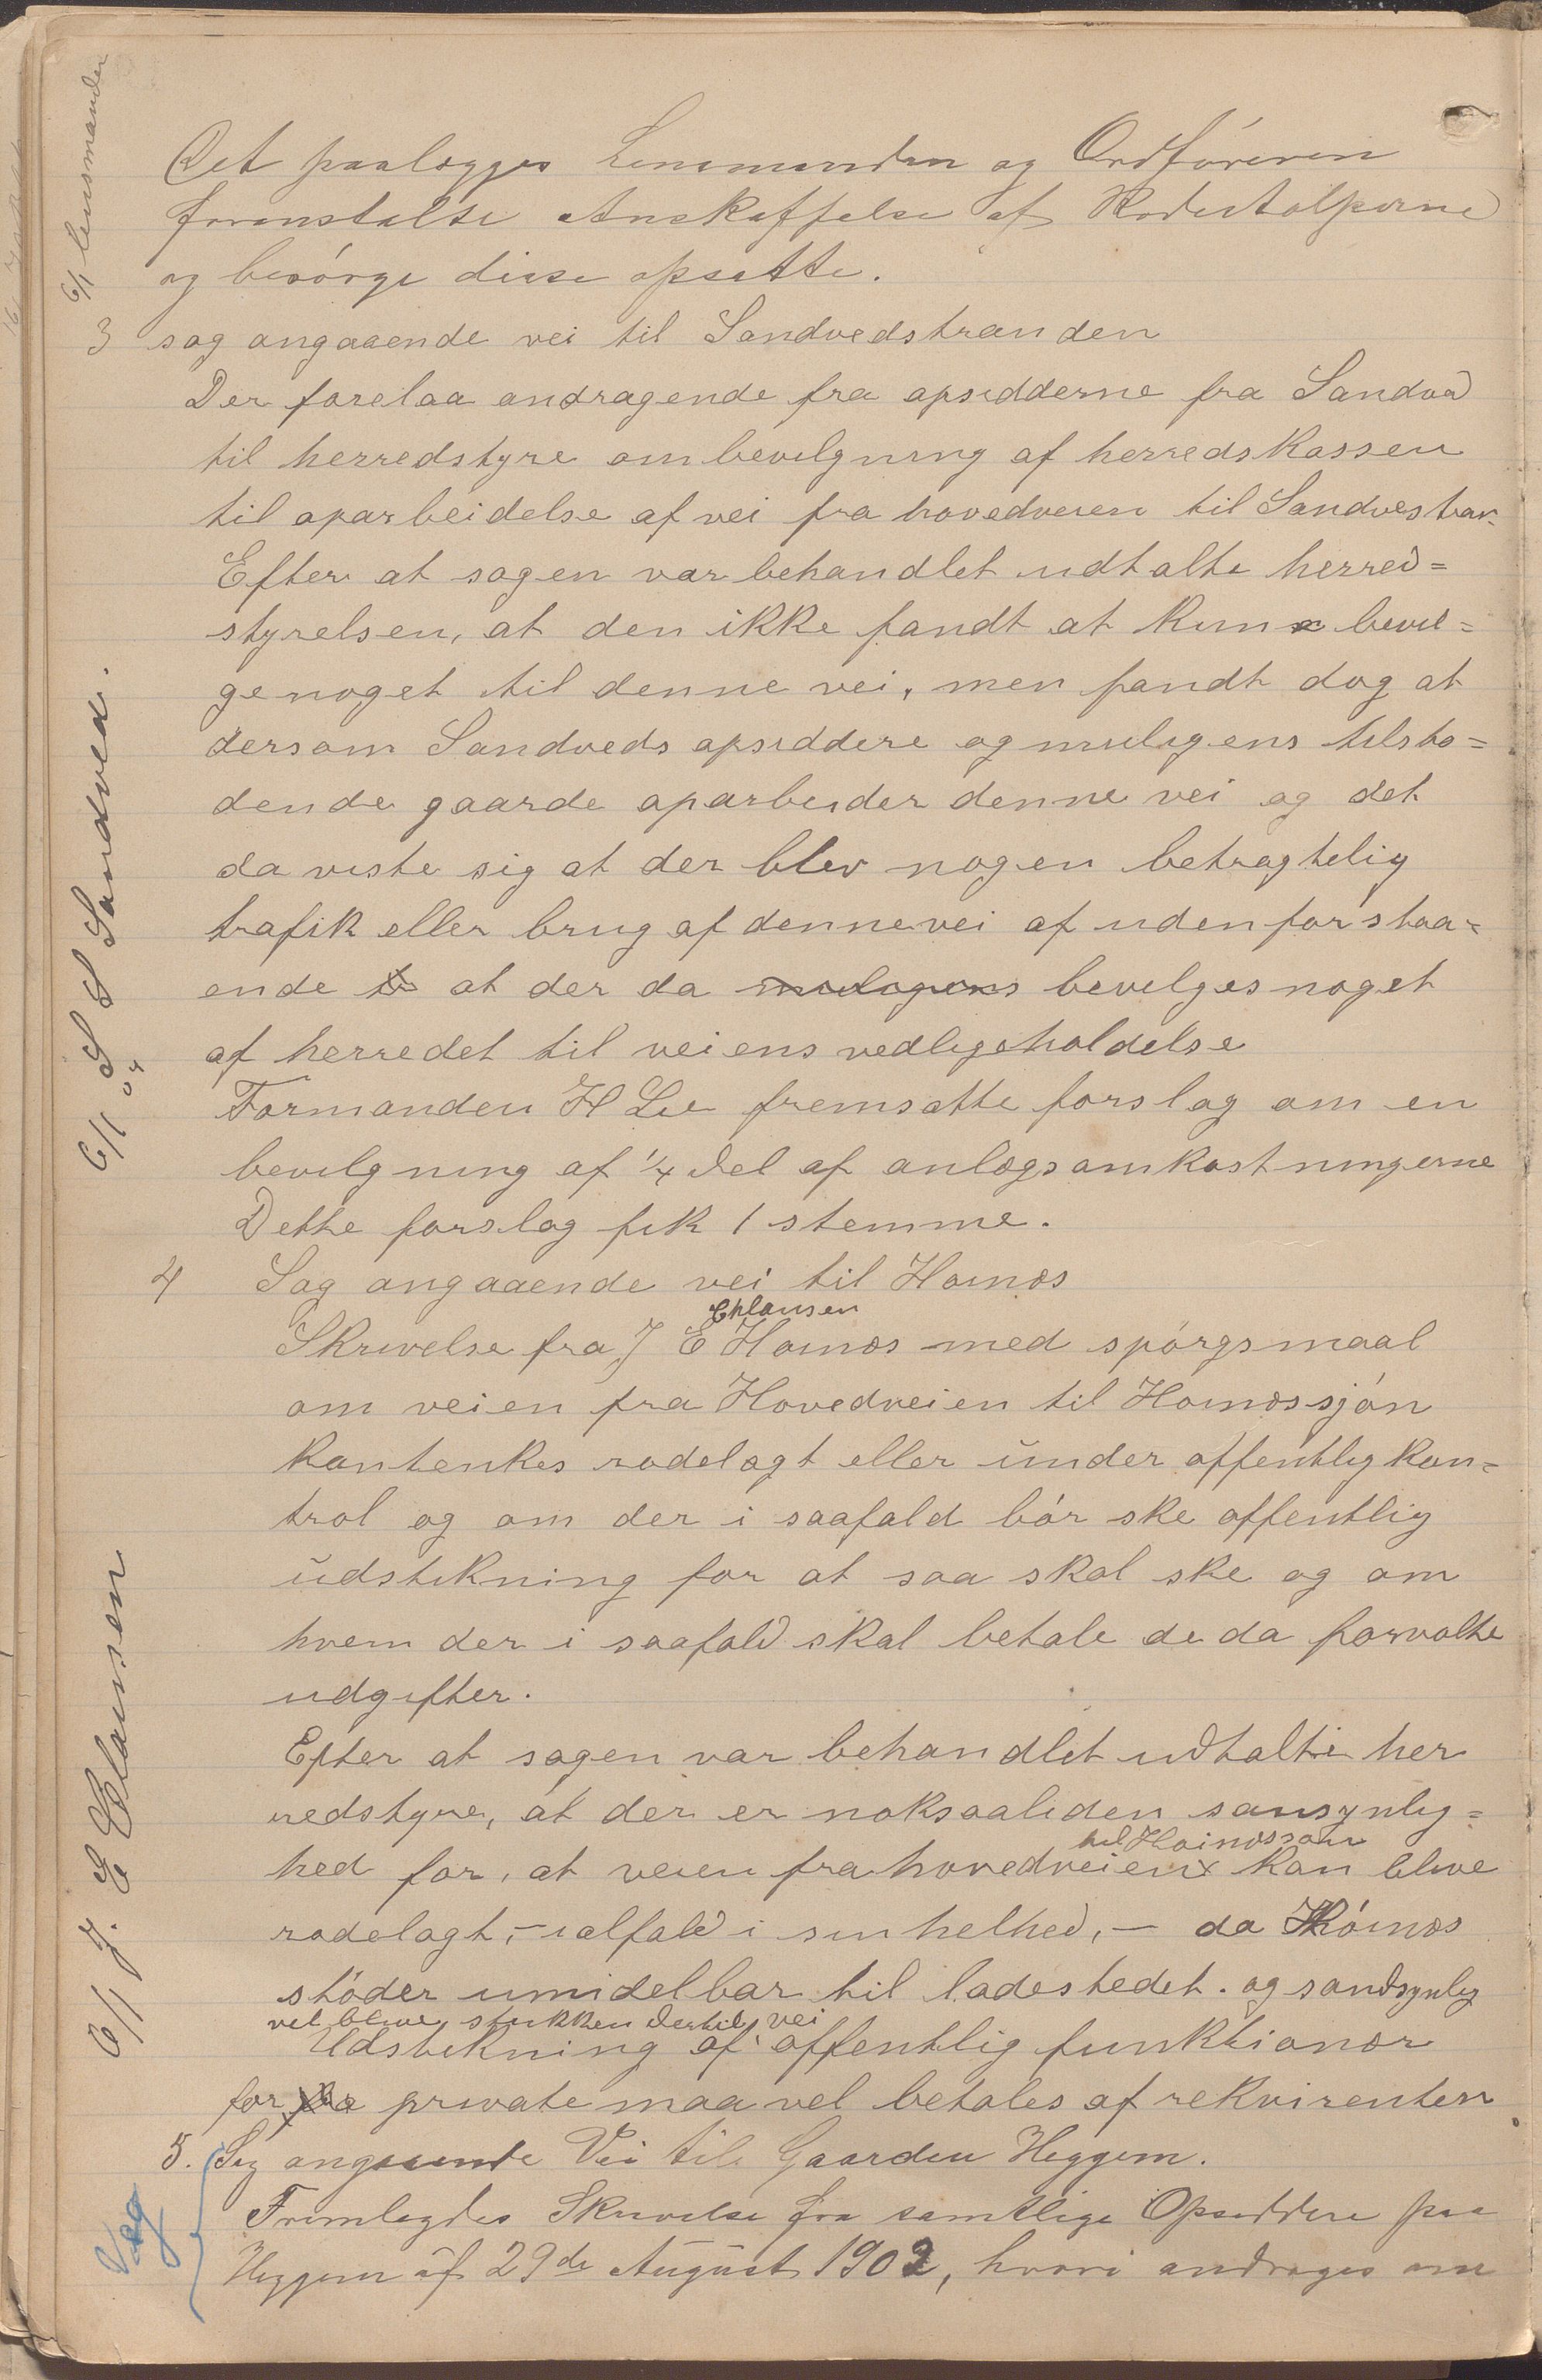 6/1 lensmanden
Det paalægges Lensmanden og Ordføreren
foranstalte Anskaffelse af Rodestolperne
og besórge disse opsatte.
3 sag angaaende vei til Sandvedstranden
Der forelaa andragende fra opsidderne fra Sandvd
til herredstyre om bevilgning af herredskassen
til oparbeidelse af vei fra hovedveien til Sandvestran
Efter at sagen var behandlet udtalte herred=
styrelsen, at den ikke fandt at kunne bevil=
ge noget til denne vei, men fandt dog at
dersom Sandveds opsiddere og muligens tilstø=
dende gaarde oparbeider denne vei og det
da viste sig at der blev nogen betragtelig
trafik eller brug af denne vei af udenforstaa=
ende at der da muligens bevilges noget
af herredet til veiens vedligeholdelse
6/1 03 S S Sandved.
Formanden H Lie fremsatte forslag om en
bevilgning af 1/4 del af anlægsomkostningerne
Dette forslag fik 1 stemme.
4 Sag angaaende vei til Hamnæs
Eklausen
Skrivelse fra J E Hamnæs med spórgsmaal
om veien fra Hovedveien til Hamnæssjón
kan tenkes rodelagt eller under offentlig kon=
trol og om der i saafald bór ske offentlig
udstikning for at saa skal ske og om
hvem der i saafald skal betale de da forvolte
udgifter.
6/1 J. E Elausen
Efter at sagen var behandlet udtalte her
redstyre, at der er noksaaliden sansynlig=
til Hamnæssón
hed for, at veien fra hovedveienx kan blive
rodelagt, – ialfald i sin helhed, – da Hamnæs
stóder umidelbar til ladestedet. og sandsynlig
vil blive stukken dertil vei
Udstikning af offentlig funktionær
for private maa vel betales af rekvirenten
5. Sag angaaende Vei til Gaarden Heggem.
Veg
Fremlagdes Skrivelse fra samtlige Opsiddere paa
Heggem af 29de August 1902, hvori andrages om